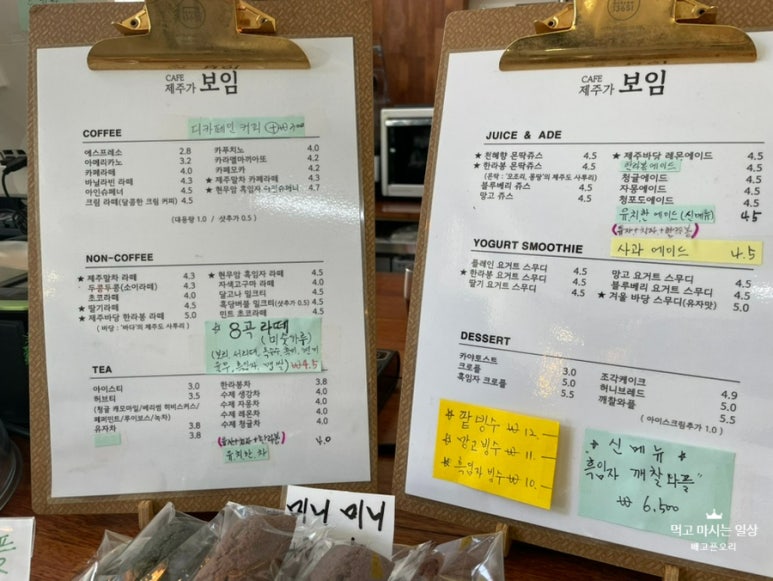 CAFE
제주가 보임
COFFEE
디카페인 커피 ⊕₩300
에스프레소 2.8
아메리카노 3.2
카페라떼 4.0
바닐라빈 라떼 4.3
아인슈페너 4.5
크림 라떼(달콤한 크림 커피) 4.5
카푸치노 4.0
카라멜마끼아또 4.2
카페모카 4.2
★ 제주말차 카페라떼 4.3
★ 현무암 흑임자 아인슈페너 4.7
(대용량 1.0 / 샷추가 0.5)
NON-COFFEE
★ 제주말차 라떼 4.3
두콩두콩(소이라떼) 4.3
초코라떼 4.0
★ 딸기라떼 4.5
★ 제주바당 한라봉 라떼 5.0
(바당 : '바다'의 제주도 사투리)
★ 현무암 흑임자 라떼 4.5
자색고구마 라떼 4.5
달고나 밀크티 4.5
흑당버블 밀크티(샷추가 0.5) 4.5
민트 초코라떼 4.5
8곡 라떼
(미숫가루)
₩4.5
TEA
아이스티 3.0
허브티 3.5
(청귤 캐모마일/베리썸 히비스커스/
페퍼민트/루이보스/녹차)
유자차 3.8
3.8
한라봉차 3.8
수제 생강차 4.0
수제 자몽차 4.0
수제 레몬차 4.0
수제 청귤차 4.0
(유자+치자+한라봉) 4.0
유치한 차
CAFE
제주가 보임
JUICE & ADE
★ 천혜향 몬딱쥬스 4.5
★ 한라봉 몬딱쥬스 4.5
(몬딱 : '모조리, 몽땅'의 제주도 사투리)
블루베리 쥬스 4.5
망고 쥬스 4.5
★ 제주바당 레몬에이드 4.5
한라봉에이드 4.5
청귤에이드 4.5
자몽에이드 4.5
청포도에이드 4.5
유치한 에이드(신메뉴) 4.5
(유자+치자+한라봉)
사과 에이드 4.5
YOGURT SMOOTHIE
플레인 요거트 스무디 4.5
★ 한라봉 요거트 스무디 4.5
딸기 요거트 스무디 4.5
망고 요거트 스무디 4.5
블루베리 요거트 스무디 4.5
★ 겨울 바당 스무디(유자맛) 5.0
DESSERT
카야토스트 3.9
크로플 5.0
흑임자 크로플 5.5
조각케이크 4.9
허니브레드 5.0
깨찰와플 5.5
(아이스크림추가 1.0)
팥빙수 ₩12.-
망고빙수 ₩11.-
흑임자빙수 ₩10.-
신메뉴
흑임자 깨찰와플"
₩6,500
미니 미니
먹고 마시는 일상
배고픈오리